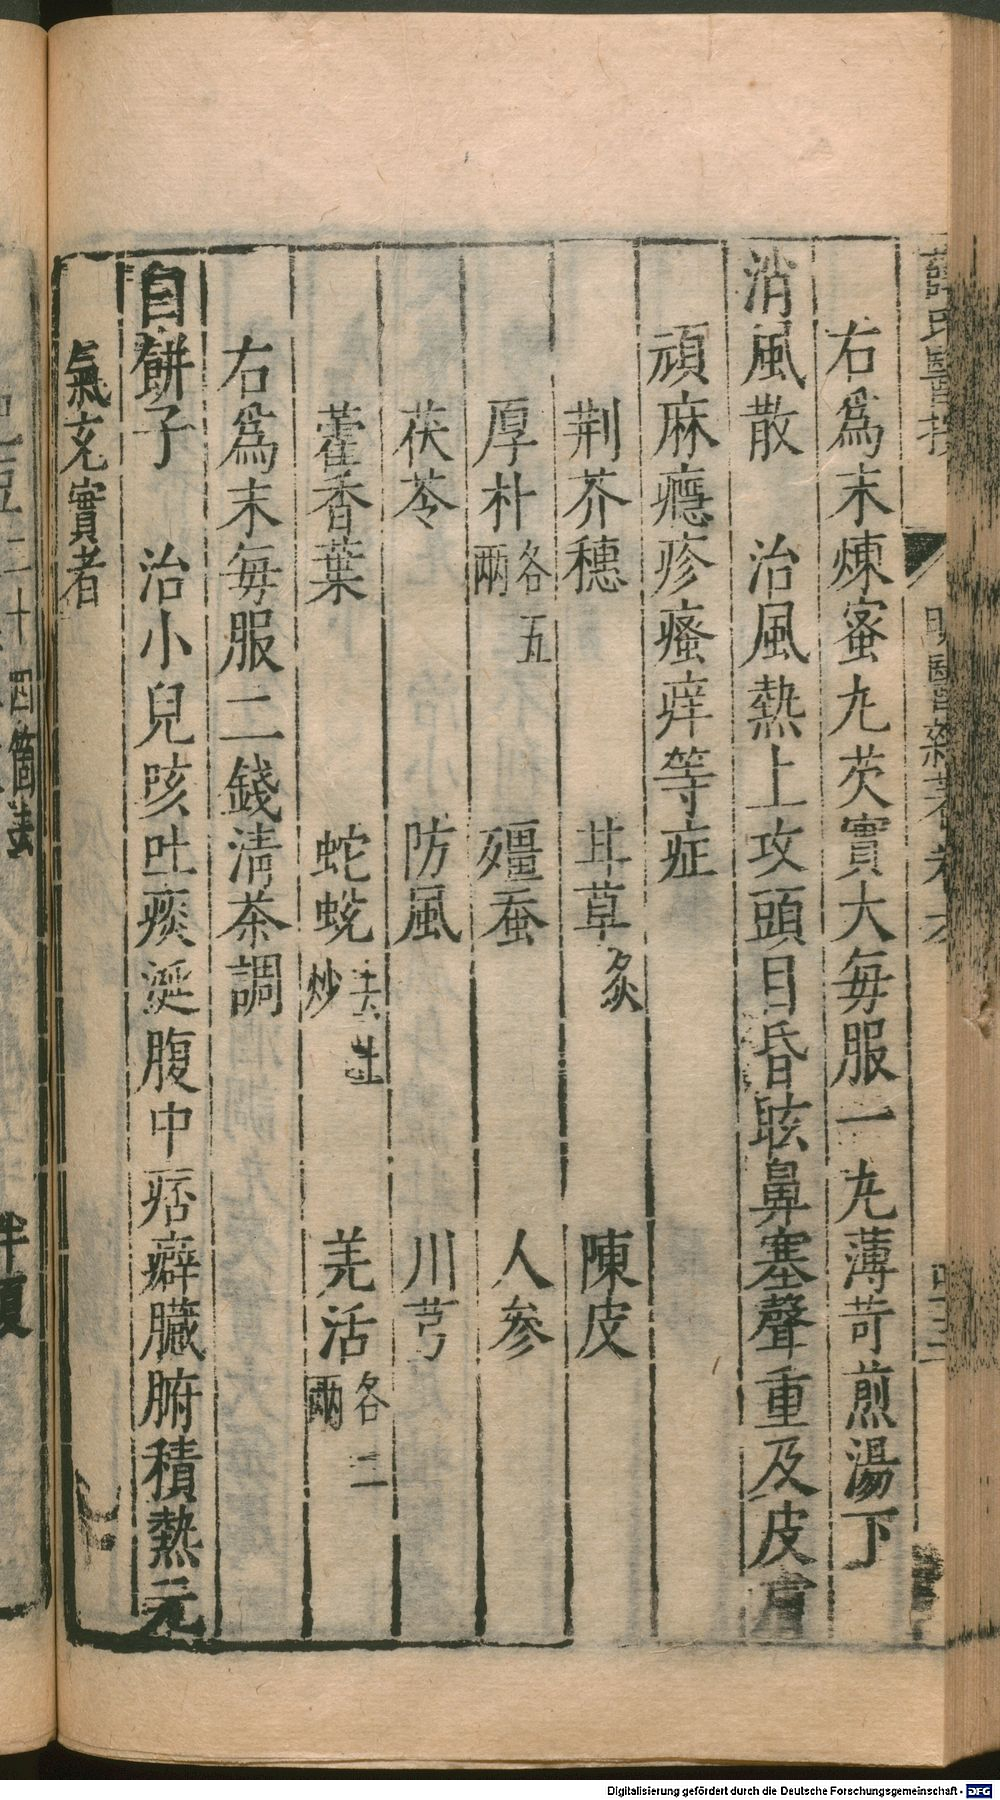 薛氏醫按 明醫雜著卷六
右爲末煉蜜丸芡實大每服一丸薄苛煎湯下
消風散 治風熱上攻頭目昏眩鼻塞聲重及皮膚
頑麻癮疹瘙痒等症
荆芥穗 甘草炙 陳皮
厚朴各五兩 殭蚕 人參
茯苓 防風 川芎
藿香葉 蛇蛻去土炒 羌活各二兩
右爲末每服二錢清茶調
白餅子 治小兒咳吐痰涎腹中痞癖臟腑積熱元
氣充實者
二十四箇
半夏
Digitalisierung gefördert durch die Deutsche Forschungsgemeinschaft - DFG